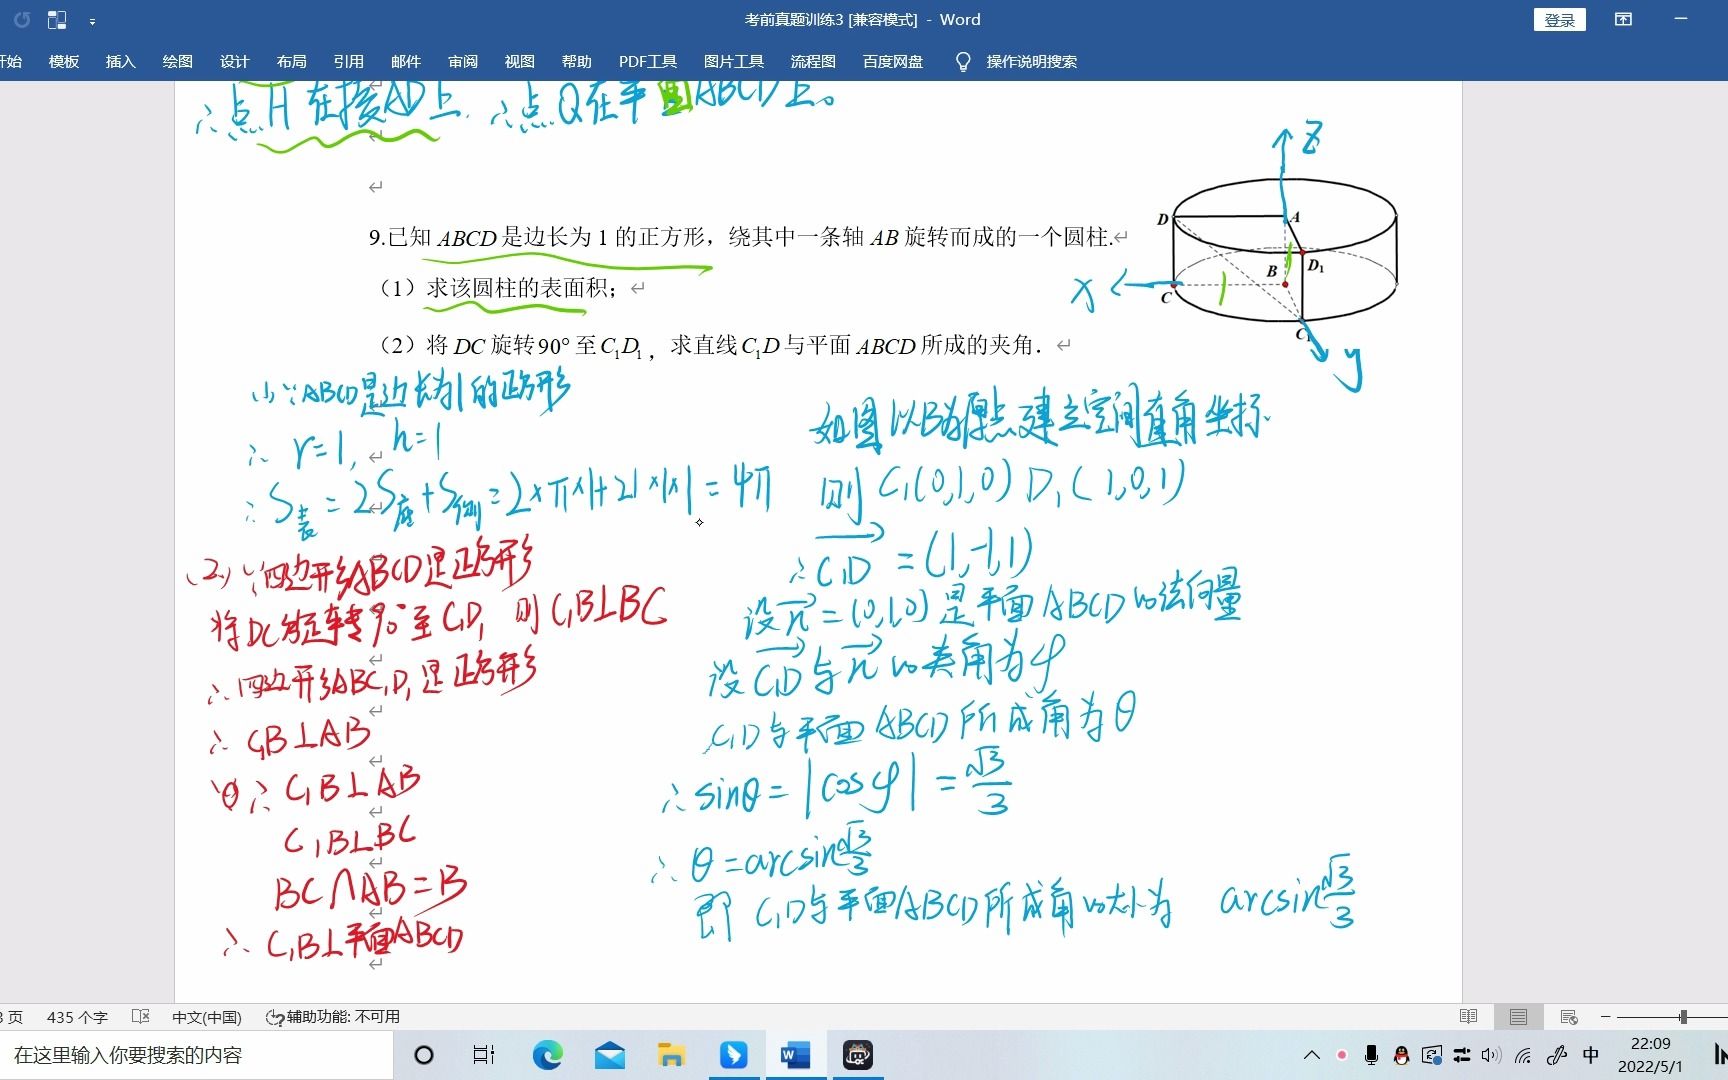 考前真题训练3 [兼容模式] - Word
登录
开始 模板 插入 绘图 设计 布局 引用 邮件 审阅 视图 帮助 PDF工具 图片工具 流程图 百度网盘 操作说明搜索
∴点H在接AD上 ∴点Q在平面ABCD上。
9.已知 ABCD 是边长为 1 的正方形，绕其中一条轴 AB 旋转而成的一个圆柱.
（1）求该圆柱的表面积；
（2）将 DC 旋转 90° 至 C₁D₁，求直线 C₁D 与平面 ABCD 所成的夹角．
z
D A
B D₁
x C
C₁
y
(1) ∵ABCD是边长为1的正方形
∴ r=1, h=1
∴ S表 = 2S底 + S侧 = 2×π×1+2π×1×1 = 4π
(2) ∵四边形ABCD是正方形
将DC旋转90°至C₁D₁ 则C₁B⊥BC
∴四边形ABC₁D₁是正方形
∴ C₁B⊥AB
∵ ∴ C₁B⊥AB
C₁B⊥BC
BC∩AB=B
∴ C₁B⊥平面ABCD
如图以B为原点建立空间直角坐标.
则 C₁(0,1,0) D₁(1,0,1)
∴ C₁D = (1,-1,1)
设n=(0,1,0)是平面ABCD的法向量
设C₁D与n的夹角为φ
C₁D与平面ABCD所成角为θ
∴ sinθ = |cosφ| = √3/3
∴ θ = arcsin √3/3
即 C₁D与平面ABCD所成角的大小为 arcsin √3/3
3 页 435 个字 中文(中国) 辅助功能: 不可用
在这里输入你要搜索的内容
中
22:09
2022/5/1